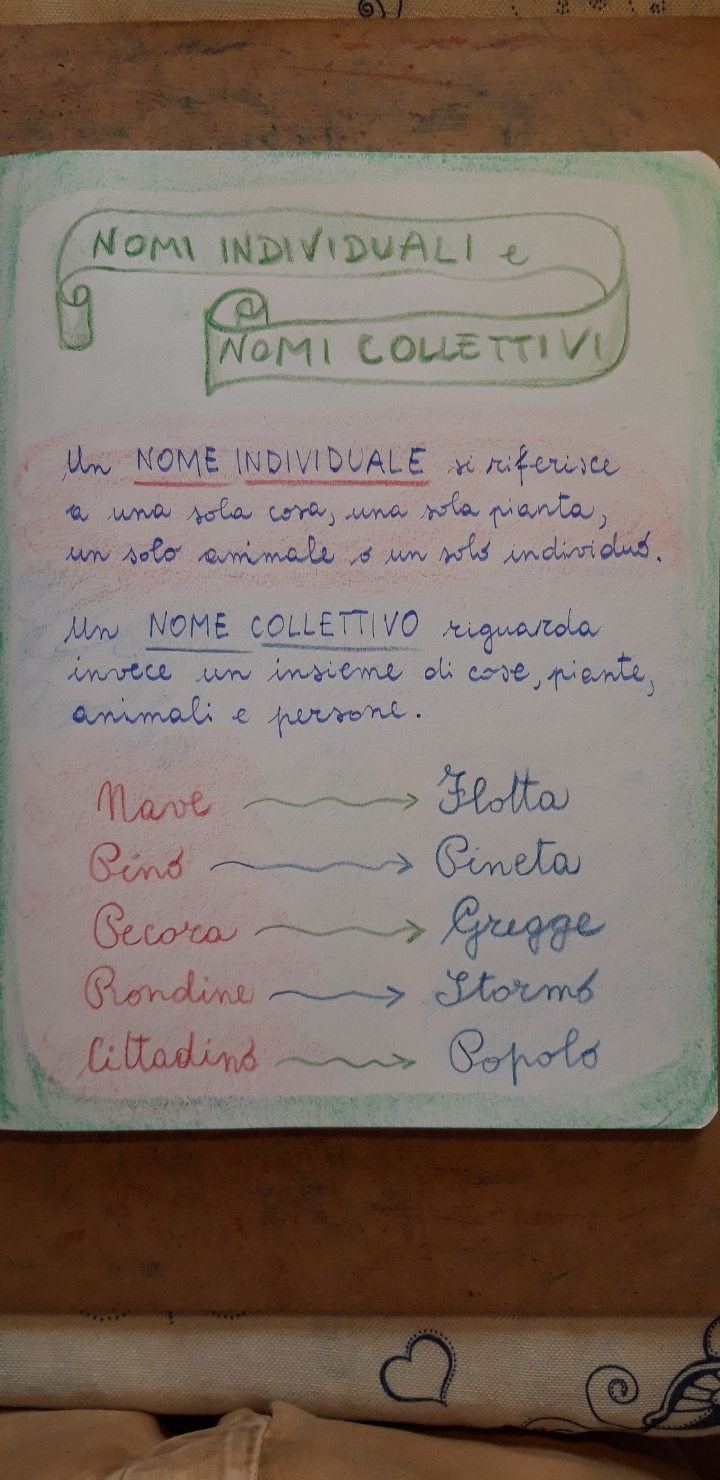 NOMI INDIVIDUALI e
NOMI COLLETTIVI
Un NOME INDIVIDUALE si riferisce
a una sola cosa, una sola pianta,
un solo animale o un solo individuo.
Un NOME COLLETTIVO riguarda
invece un insieme di cose, piante,
animali e persone.
Nave → Flotta
Pino → Pineta
Pecora → Gregge
Rondine → Stormo
Cittadino → Popolo